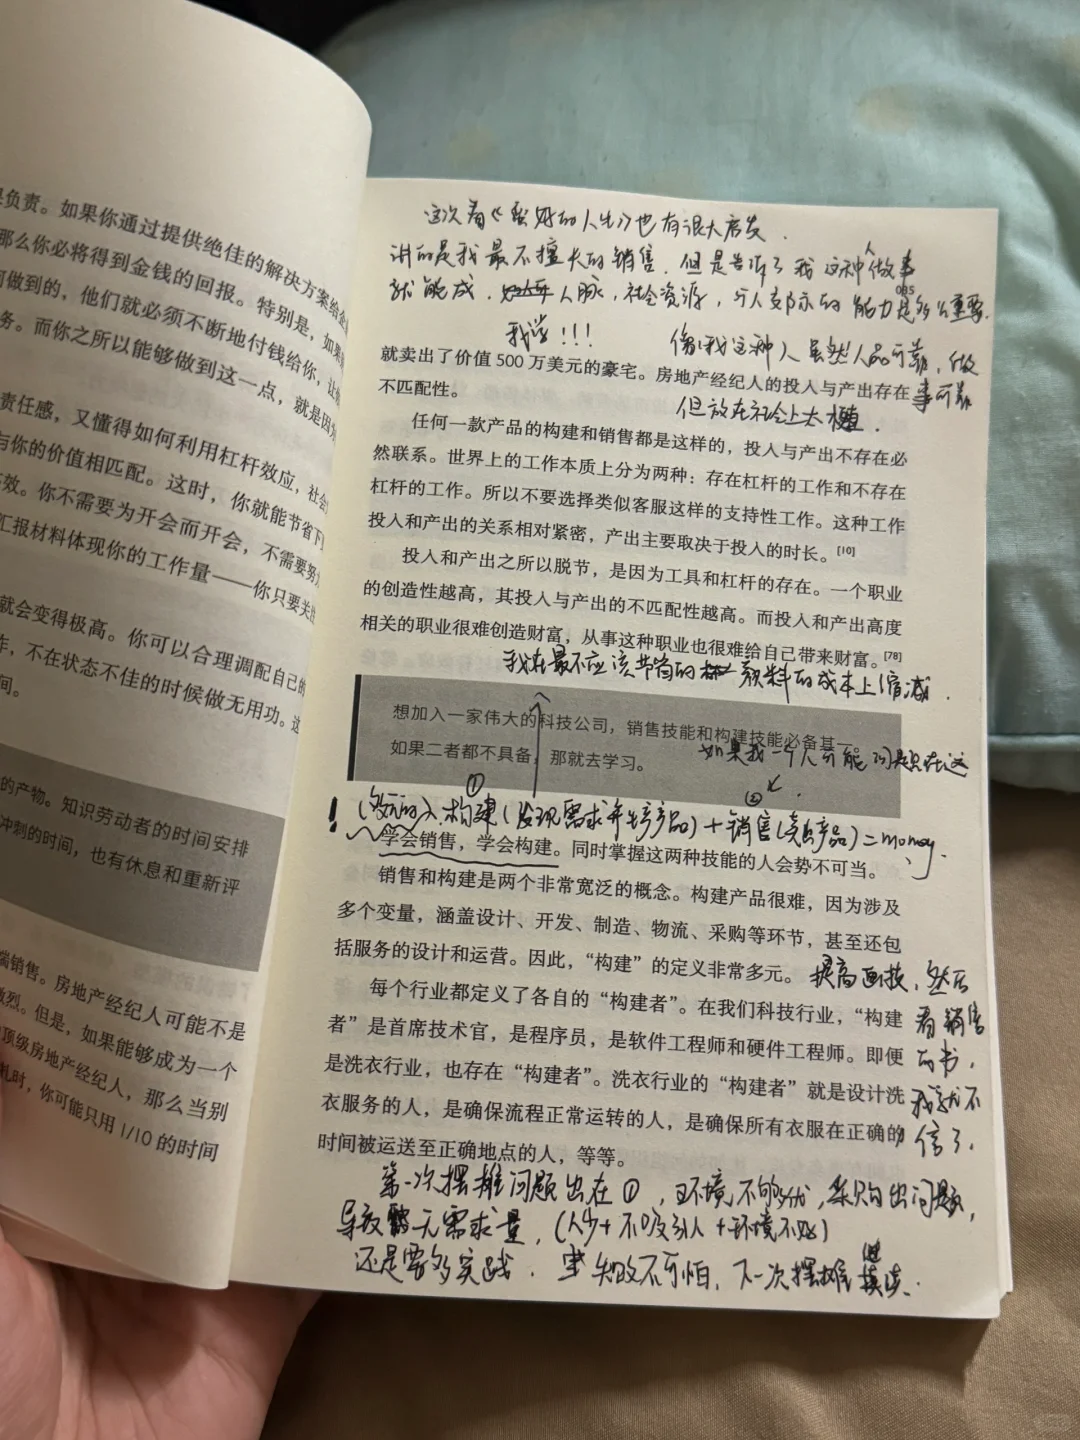 是负责。如果你通过提供绝佳的解决方案给
那么你必将得到金钱的回报。特别是,如果
何做到的,他们就必须不断地付钱给你,让
务。而你之所以能够做到这一点,就是因为
责任感,又懂得如何利用杠杆效应,社会
与你的价值相匹配。这时,你就能节省下
高效。你不需要为开会而开会,不需要努
汇报材料体现你的工作量——你只要关
就会变得极高。你可以合理调配自己的
作,不在状态不佳的时候做无用功。这
间。
的产物。知识劳动者的时间安排
冲刺的时间,也有休息和重新评
端销售。房地产经纪人可能不是
激烈。但是,如果能够成为一个
顶级房地产经纪人,那么当别
札时,你可能只用 1/10 的时间
这次看《蛮好的人生》也有很大启发.
讲的是我最不擅长的销售.但是告诉了我这种人做事
就能成.人脉,社会资源,与人交际的能力是多么重要.
085
我学!!!
像我这种人虽然人品可靠,做
事可靠
就卖出了价值 500 万美元的豪宅。房地产经纪人的投入与产出存在
不匹配性。
但放在社会上太
任何一款产品的构建和销售都是这样的,投入与产出不存在必
然联系。世界上的工作本质上分为两种:存在杠杆的工作和不存在
杠杆的工作。所以不要选择类似客服这样的支持性工作。这种工作
投入和产出的关系相对紧密,产出主要取决于投入的时长。[10]
投入和产出之所以脱节,是因为工具和杠杆的存在。一个职业
的创造性越高,其投入与产出的不匹配性越高。而投入和产出高度
相关的职业很难创造财富,从事这种职业也很难给自己带来财富。[78]
我在最不应该节省的颜料的成本上缩减.
想加入一家伟大的科技公司,销售技能和构建技能必备其一。
如果二者都不具备,那就去学习。
如果我一个人可能问题只在这
① ②
构建(发现需求并生产产品)+销售(卖出产品)=money.
!
学会销售,学会构建。同时掌握这两种技能的人会势不可当。
销售和构建是两个非常宽泛的概念。构建产品很难,因为涉及
多个变量,涵盖设计、开发、制造、物流、采购等环节,甚至还包
括服务的设计和运营。因此,“构建”的定义非常多元。
提高画技,然后
看销售
的书,
我就不
信了.
每个行业都定义了各自的“构建者”。在我们科技行业,“构建
者”是首席技术官,是程序员,是软件工程师和硬件工程师。即便
是洗衣行业,也存在“构建者”。洗衣行业的“构建者”就是设计洗
衣服务的人,是确保流程正常运转的人,是确保所有衣服在正确的
时间被运送至正确地点的人,等等。
第一次摆摊问题出在①,环境不够优,采购出问题,
导致无需求量,(人少+不吸引人+环境不好)
还是要多实践.失败不可怕,下一次摆摊继续.